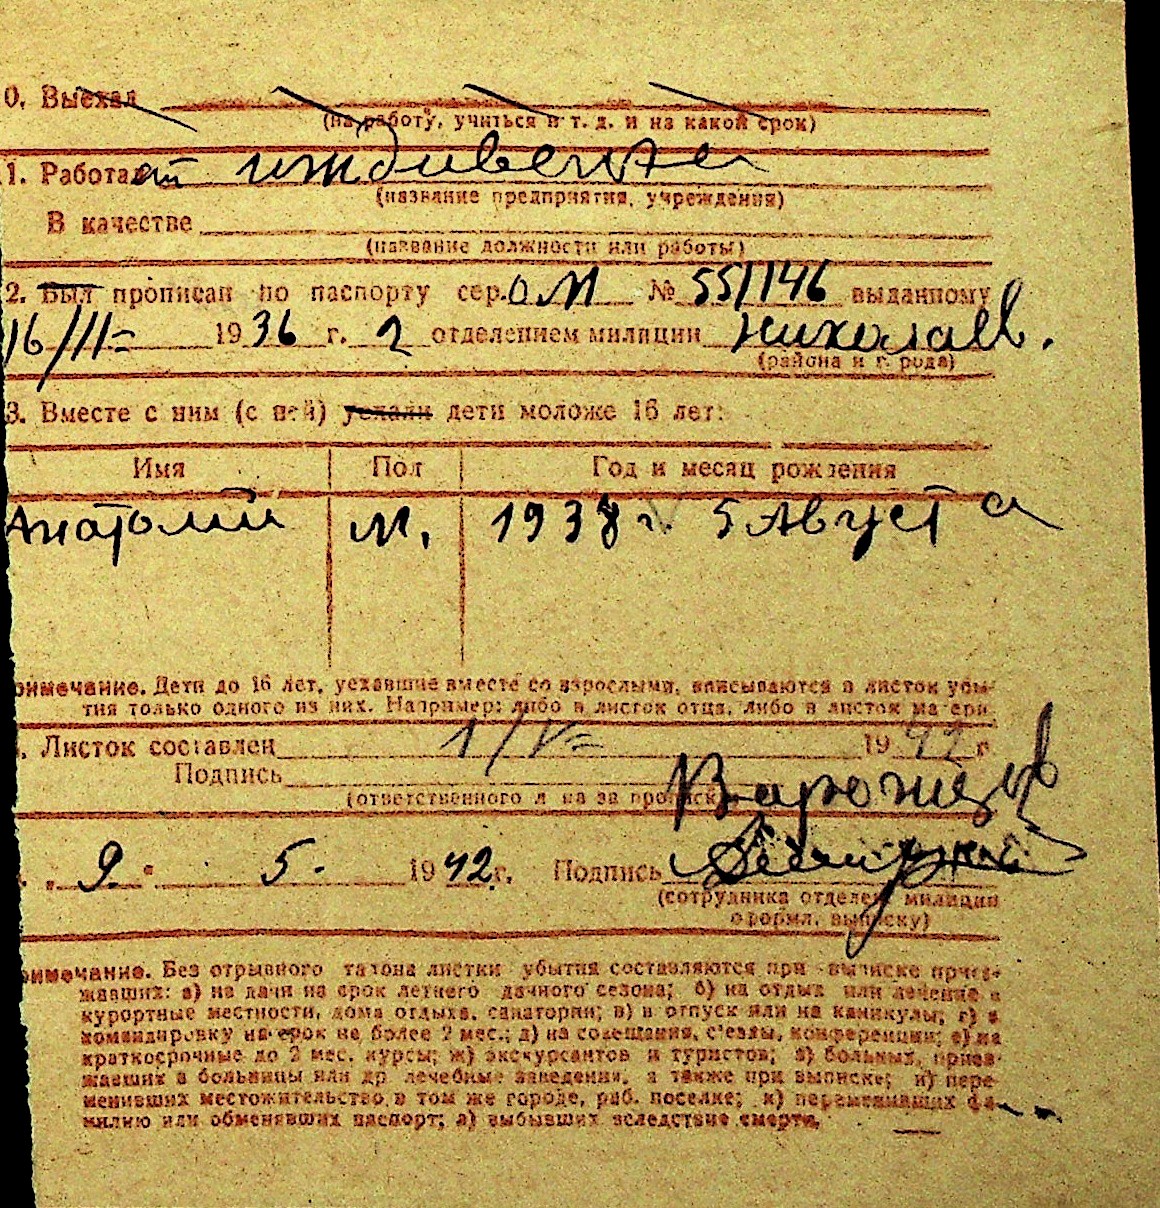 0. Выехал
(на работу, учиться и т. д. и на какой срок)
1. Работает иждивенка
(название предприятия, учреждения)
В качестве
(название должности или работы)
2. Был прописан по паспорту сер. ОМ № 551146 выданному
16/III- 1936 г. 2 отделением милиции Николаев.
(района и города)
3. Вместе с ним (с ней) уехали дети моложе 16 лет:
Имя Пол Год и месяц рождения
Анатолий М. 1938 г. 5 Августа
римечание. Дети до 16 лет, уехавшие вместе со взрослыми, вписываются в листок убы-
тия только одного из них. Например: либо в листок отца, либо в листок матери.
. Листок составлен 1/V- 1942 г
Подпись
(ответственного л на за прописку)
. „ 9. " 5. 1942 г. Подпись
(сотрудника отделен милиции
оформл. выписку)
римечание. Без отрывного талона листки убытия составляются при выписке приез-
жавших: а) на дачи на срок летнего дачного сезона; б) на отдых или лечение в
курортные местности, дома отдыха, санатории; в) в отпуск или на каникулы; г) в
командировку на срок не более 2 мес.; д) на совещания, с'езды, конференции; е) на
краткосрочные до 2 мес. курсы; ж) экскурсантов и туристов; з) больных, приез-
жавших в больницы или др лечебные заведения, а также при выписке; и) пере-
менивших местожительство в том же городе, раб. поселке; к) переменивших фа-
милию или обменявших паспорт; л) выбывших вследствие смерти.